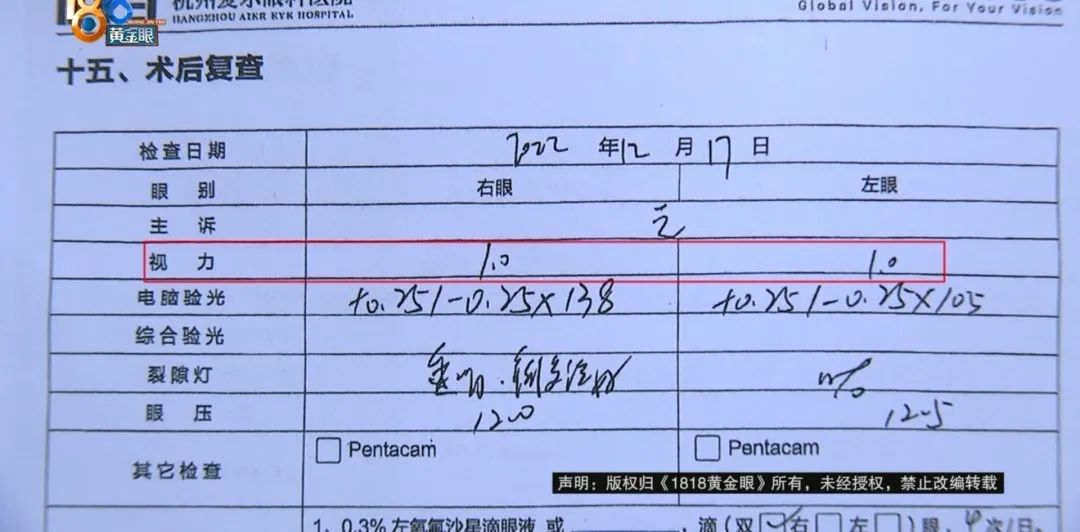 杭州爱尔眼科医院
HANGZHOU AIER EYE HOSPITAL
Global Vision, For Your Vision
黄金眼
十五、术后复查
检查日期 2022 年 12 月 17 日
眼别 右眼 左眼
主诉 无
视力 1.0 1.0
电脑验光 +0.25/-0.25×138 +0.25/-0.25×105
综合验光
裂隙灯
眼压 12.0 12.5
其它检查 □ Pentacam □ Pentacam
声明：版权归《1818黄金眼》所有，未经授权，禁止改编转载
1、0.3% 左氧氟沙星滴眼液 或 ，滴（双☑右□左□）眼，4次/日